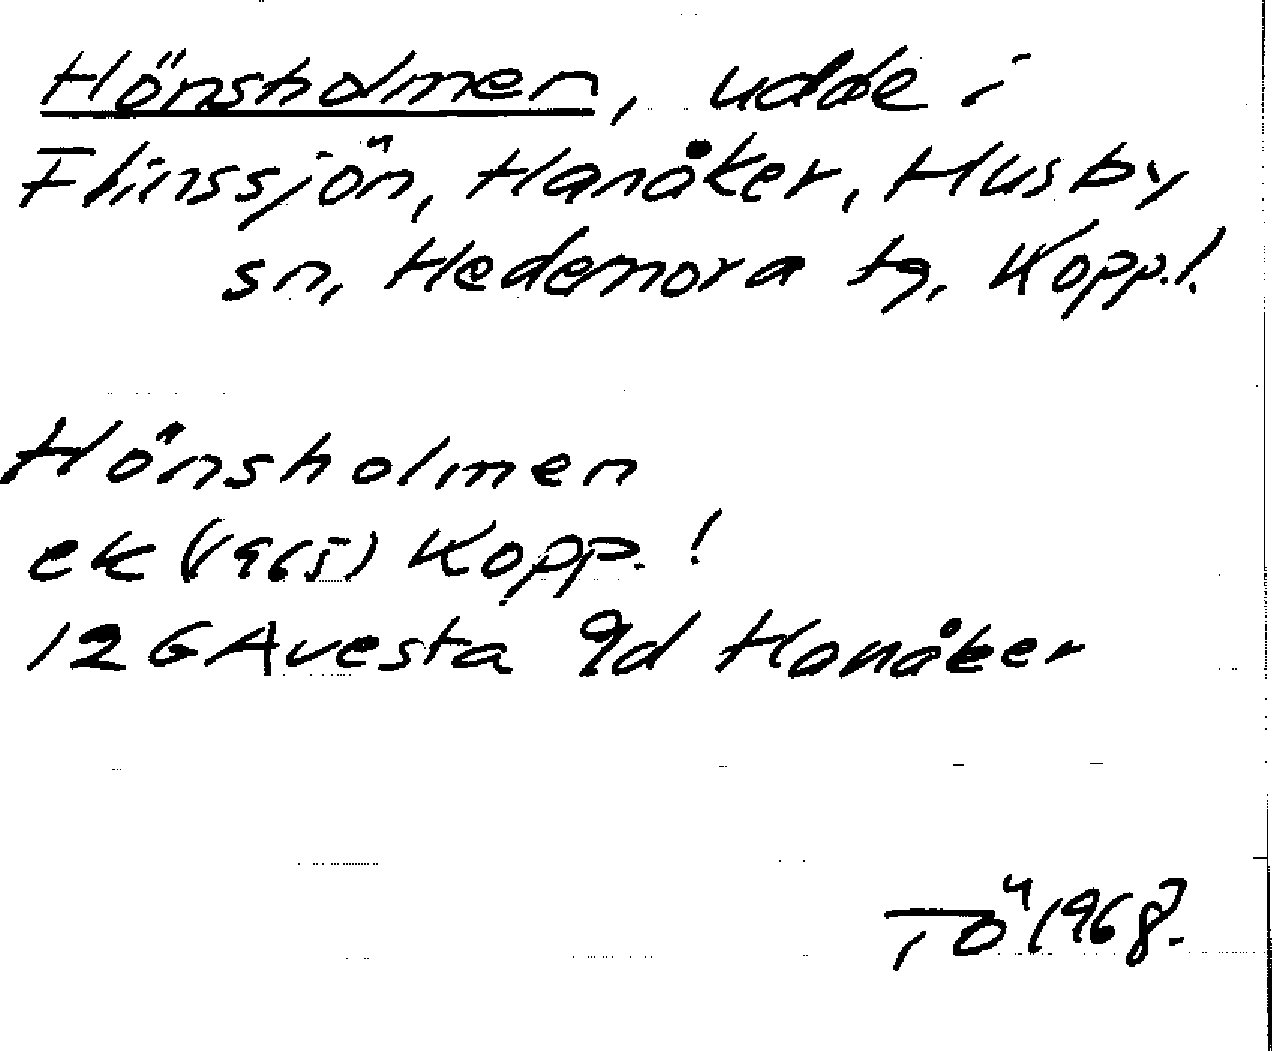 Hönsholmen, udde i
Flinssjön, Hanåker, Husby
sn, Hedemora tg, Kopp.l.
Hönsholmen
ek (1965) Kopp. l
12G Avesta 9d Hanåker
TÖ 1968.